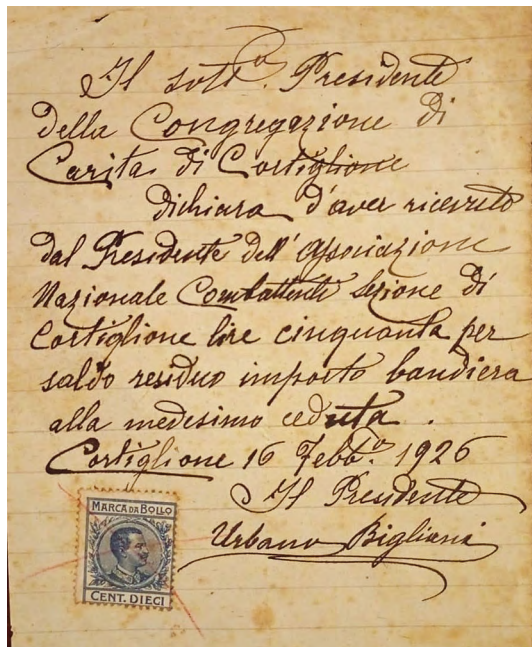 Il sott.º Presidente
della Congregazione di
Carità di Cortiglione
dichiara d'aver ricevuto
dal Presidente dell'Associazione
Nazionale Combattenti Sezione di
Cortiglione lire cinquanta per
saldo residuo importo bandiera
alla medesimo ceduta.
Cortiglione 16 Febb.º 1926
Il Presidente
Urbano Bigliani
MARCA DA BOLLO
CENT. DIECI